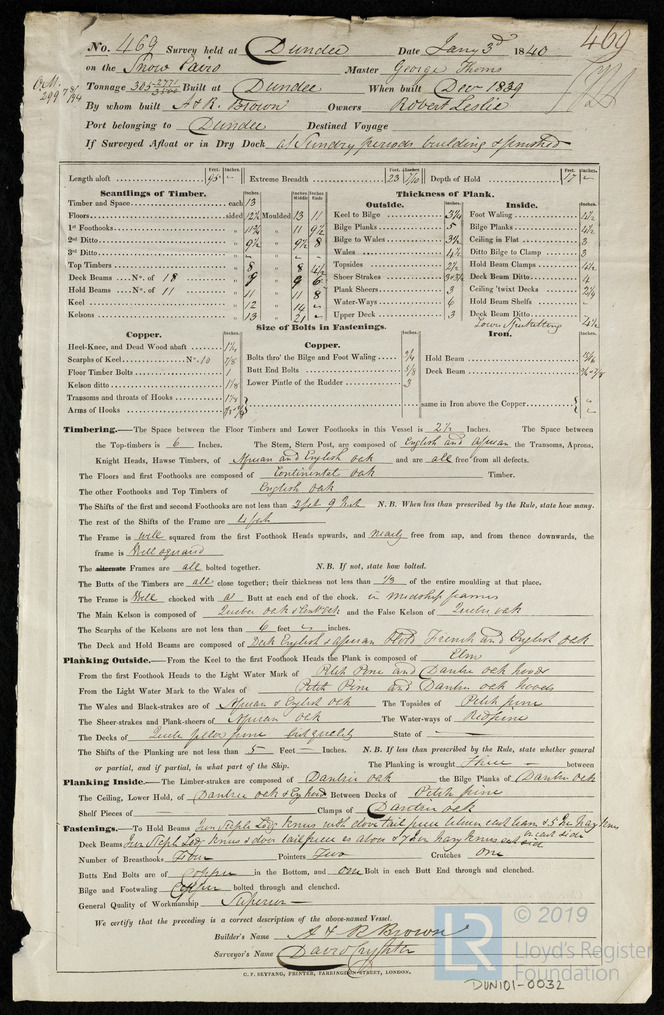 469
No. 469 Survey held at Dundee Date Jany 3d 1840
on the Snow Cairo Master George Thoms
Tonnage 305 2771/3500 Built at Dundee When built Decr 1839
By whom built A & R. Brown Owners Robert Leslie
Port belonging to Dundee Destined Voyage
If Surveyed Afloat or in Dry Dock at Sundry periods building & finished
Feet. Inches. Feet. Inches. Feet. Inches.
Length aloft 95 - Extreme Breadth 23 7/10 Depth of Hold 17 -
Scantlings of Timber.
Inches. Inches Middle Inches Ends
Timber and Space each 13
Floors sided 12½ Moulded 13 11
1st Foothooks " 11¾ " 11 9½
2nd Ditto " 9½ " 9½ 8
3rd Ditto " - " - -
Top Timbers " 8 8 4½
Deck Beams No. of 18 " 9 9 6
Hold Beams No. of 11 " 11 " 11 8
Keel " 12 " 14 -
Kelsons " 13 " 21 -
Thickness of Plank.
Outside. Inches.
Keel to Bilge 3¾
Bilge Planks 5
Bilge to Wales 3½
Wales 4½
Topsides 2½
Sheer Strakes
Plank Sheers 3
Water-Ways 6
Upper Deck 3
Inside. Inches.
Foot Waling 4½
Bilge Planks 4½
Ceiling in Flat 3
Ditto Bilge to Clamp 3
Hold Beam Clamps 4½
Deck Beam Ditto 4
Ceiling 'twixt Decks 2¼
Hold Beam Shelfs -
Deck Beam Ditto -
Lower Spirketting 4½
Size of Bolts in Fastenings.
Copper. Inches.
Heel-Knee, and Dead Wood abaft 1⅛
Scarphs of Keel No. 10 7/8
Floor Timber Bolts 1
Kelson ditto 1⅛
Transoms and throats of Hooks 1⅛
Arms of Hooks
Copper. Inches.
Bolts thro' the Bilge and Foot Waling ¾
Butt End Bolts 5/8
Lower Pintle of the Rudder 3
Iron. Inches.
Hold Beam
Deck Beam
same in Iron above the Copper
Timbering.—The Space between the Floor Timbers and Lower Foothooks in this Vessel is 2½ Inches. The Space between
the Top-timbers is 6 Inches. The Stem, Stern Post, are composed of English and African the Transoms, Aprons,
Knight Heads, Hawse Timbers, of African and English oak and are all free from all defects.
The Floors and first Foothooks are composed of Continental oak Timber.
The other Foothooks and Top Timbers of English oak
The Shifts of the first and second Foothooks are not less than 3 feet 9 Inch N. B. When less than prescribed by the Rule, state how many.
The rest of the Shifts of the Frame are
The Frame is well squared from the first Foothook Heads upwards, and nearly free from sap, and from thence downwards, the
frame is Well squared
The alternate Frames are all bolted together. N. B. If not, state how bolted.
The Butts of the Timbers are all close together; their thickness not less than 1/3 of the entire moulding at that place.
The Frame is Well chocked with a Butt at each end of the chock. in midship frames
The Main Kelson is composed of Quebec oak & and the False Kelson of Quebec oak
The Scarphs of the Kelsons are not less than 6 feet - inches.
The Deck and Hold Beams are composed of Deck English & African Hold French and English oak
Planking Outside.—From the Keel to the first Foothook Heads the Plank is composed of Elm
From the first Foothook Heads to the Light Water Mark of Pitch Pine and Dantzic oak hoods
From the Light Water Mark to the Wales of Pitch Pine and Dantzic oak hoods
The Wales and Black-strakes are of African & English oak The Topsides of Pitch pine
The Sheer-strakes and Plank-sheers of African oak The Water-ways of Red pine
The Decks of Quebec yellow pine best quality State of -
The Shifts of the Planking are not less than 5 Feet - Inches. N. B. If less than prescribed by the Rule, state whether general
or partial, and if partial, in what part of the Ship. The Planking is wrought Three - between
Planking Inside.—The Limber-strakes are composed of Dantzic oak the Bilge Planks of Dantzic oak
The Ceiling, Lower Hold, of Dantzic oak & English Between Decks of Pitch pine
Shelf Pieces of Clamps of Dantzic oak
Fastenings.—To Hold Beams Iron Staple Lodg knees with dove tail piece between each beam & 5 Iron hang knees on each side
Deck Beams Iron Staple Lodg knees & dove tail piece as above & 7 Iron hang knees each side
Number of Breasthooks Four Pointers Two Crutches One
Butts End Bolts are of Copper in the Bottom, and one Bolt in each Butt End through and clenched.
Bilge and Footwaling Copper bolted through and clenched.
General Quality of Workmanship Superior
We certify that the preceding is a correct description of the above-named Vessel.
Builder's Name A & R Brown
Surveyor's Name David Crighton
C. F. SEYFANG, PRINTER, FARRINGDON-STREET, LONDON.
LR
© 2019
Lloyd's Register
Foundation
DUN101-0032